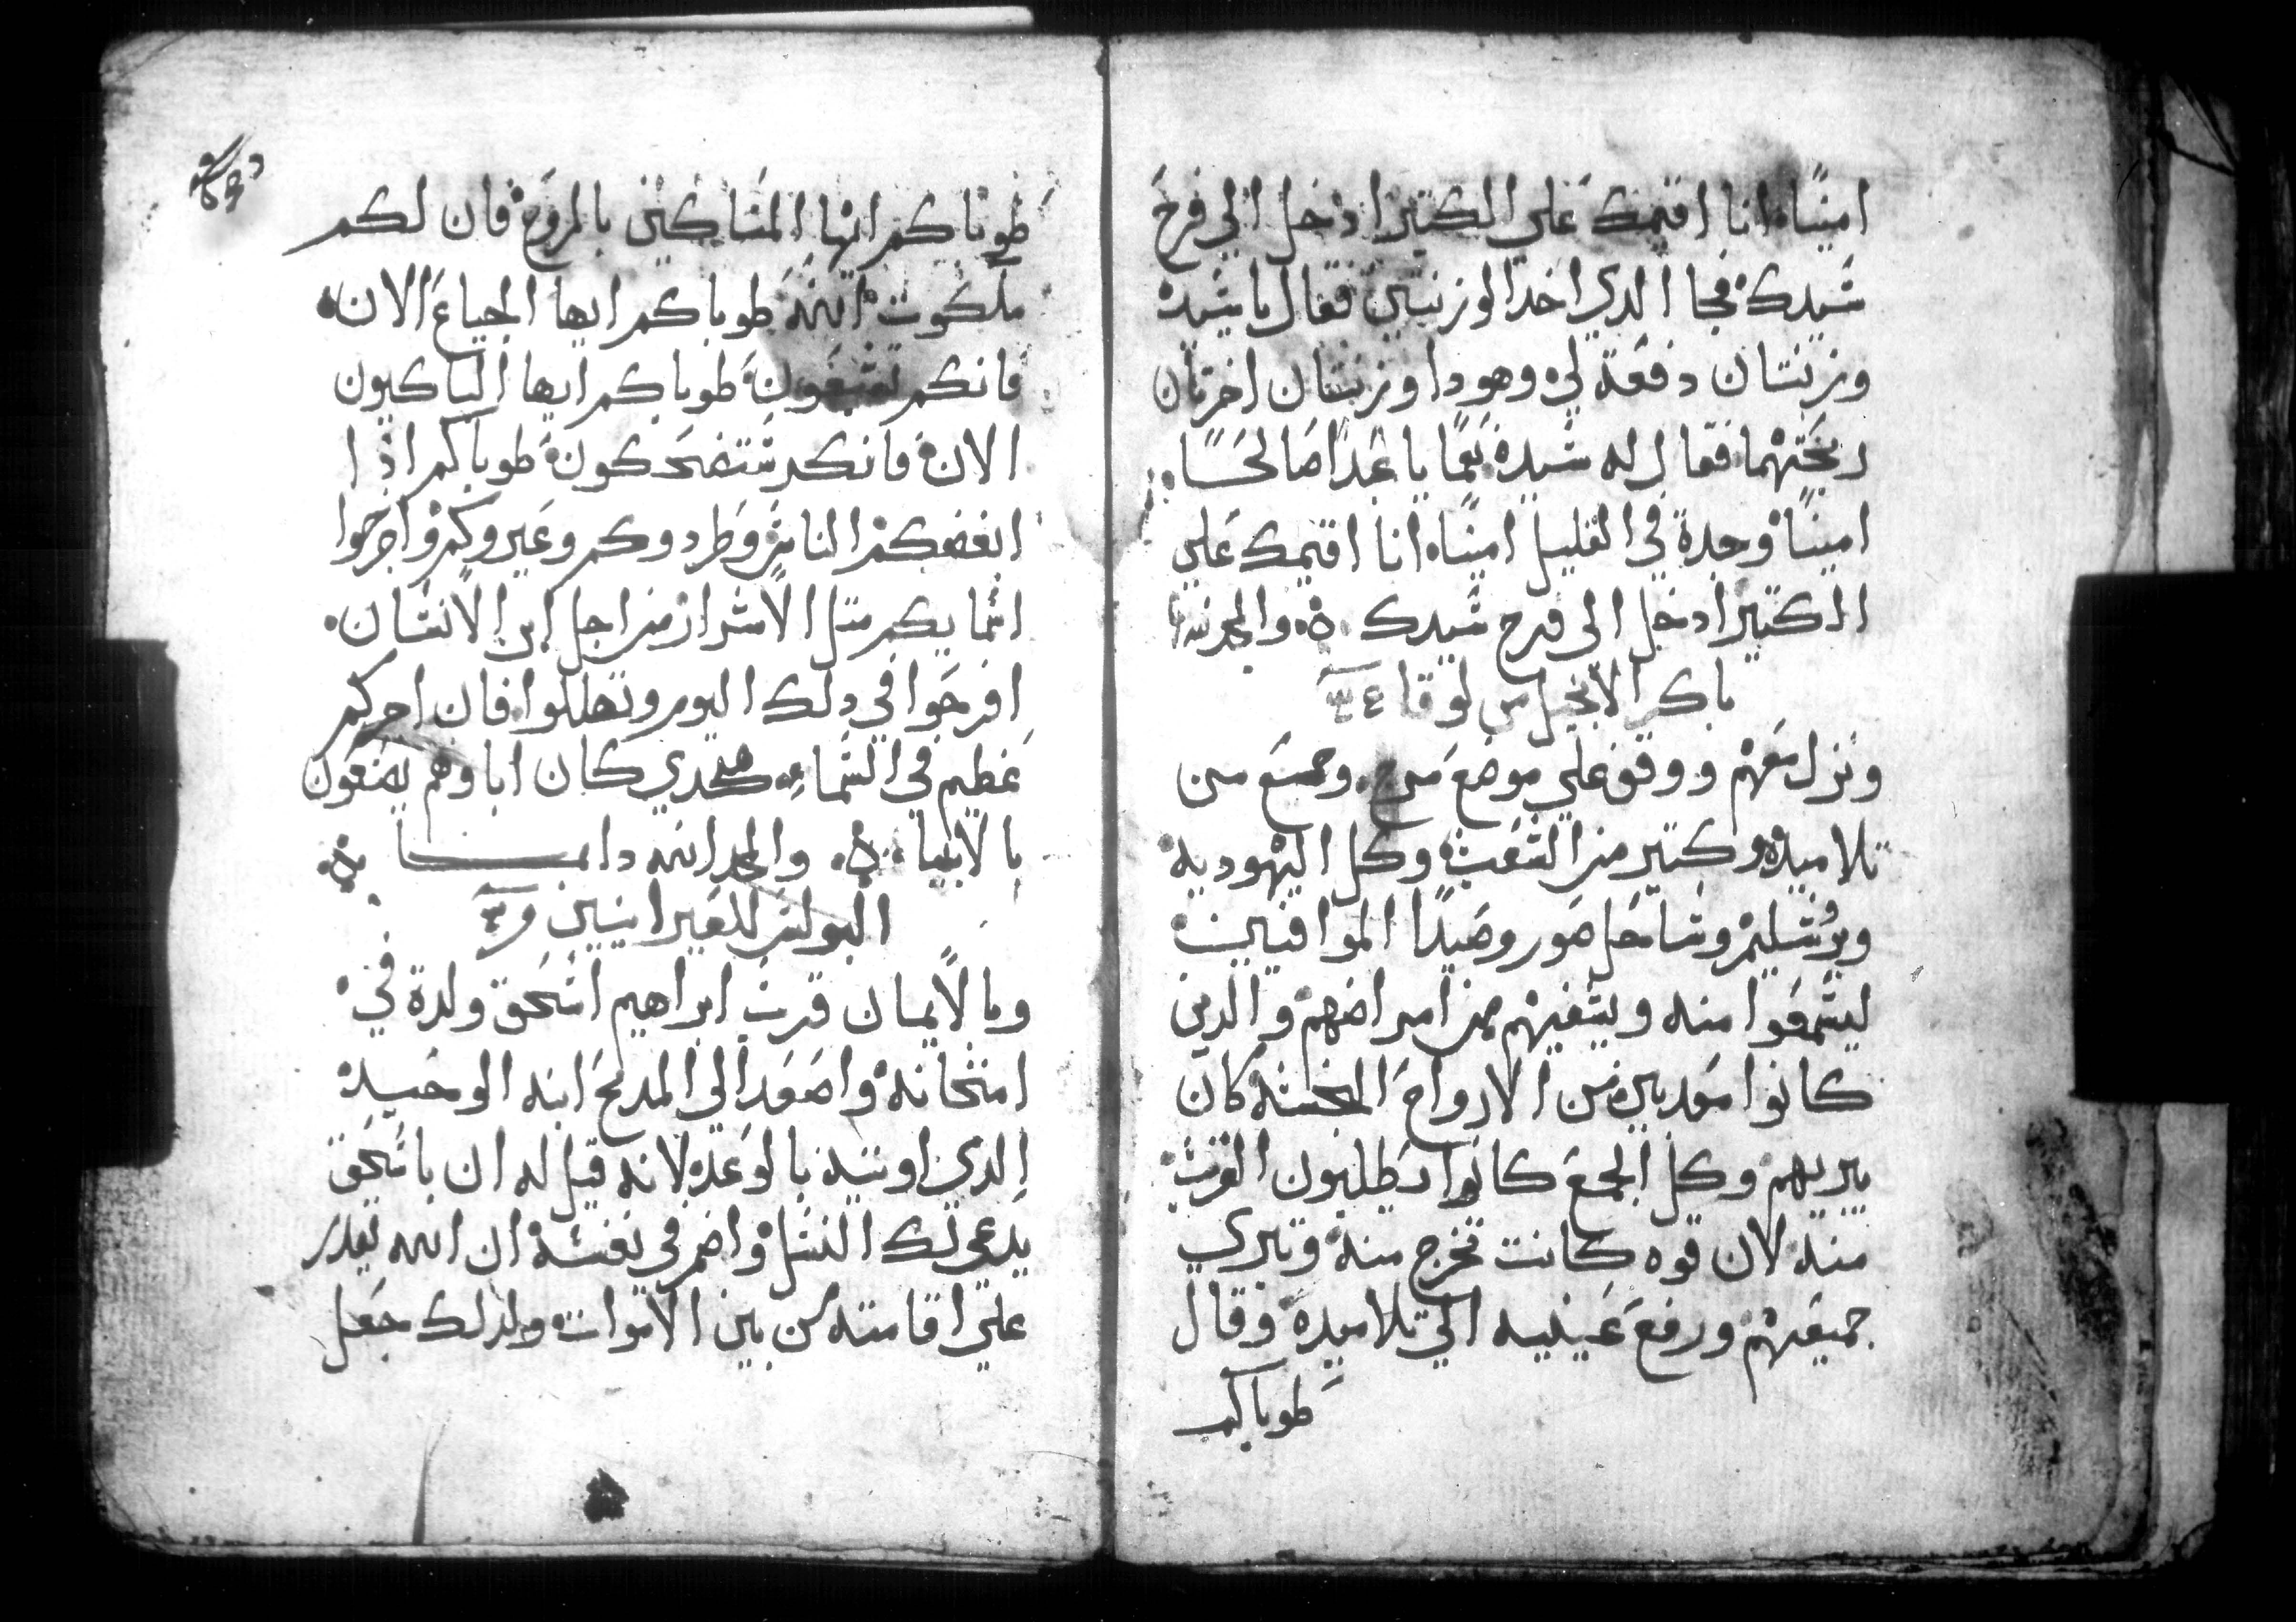 امينًا انا اقيمك علي الكتير ادخل الي فرح
سيدك فجا الدي اخد الوزنتين فقال يا سيده
وزنتان دفعة لي وهودا وزنتان اخرتان
ربحتهما فقال له سيده نعمًا يا عبدا صالحًا
امينًا وجدة في القليل امينًا انا اقيمك علي
الكتير ادخل الي فرح سيدك والمجد لله
باكر الانجيل من لوقا
ونزل معهم ووقف علي موضع مرج وجمع من
تلاميده وكتير من الشعب وكل اليهودية
ويروشليم وساحل صور وصيدا الموافيين
ليسمعوا منه ويشفيهم من امراضهم والدين
كانوا معدبين من الارواح النجسة كان
يبريهم وكل الجمع كانوا يطلبون القرب
منه لان قوه كانت تخرج منه وتبري
جميعهم ورفع عينيه الي تلاميده وقال
طوباكم
طوباكم ايها المساكين بالروح فان لكم
ملكوت الله طوباكم ايها الجياع الان
فانكم تشبعون طوباكم ايها الباكيون
الان فانكم ستضحكون طوباكم اذا
ابغضكم الناس وطردوكم وعيروكم واخرجوا
اسمايكم متل الاشرار من اجل ابن الانسان
افرحوا في دلك اليوم وتهللوا فان اجركم
عظيم في السماء هكدي كان اباوهم يصنعون
بالانبيا والمجد لله دايما
البولس للعبرانيين
وبالايمان قرب ابراهيم اسحق ولدة في
امتحانه واصعد الي المدبح ابنه الوحيد
الدي اوتيه بالوعد لانه قيل له ان باسحق
يدعي لك النسل واضمر في نفسه ان الله يقدر
علي اقامته من بين الاموات ولدلك جعل